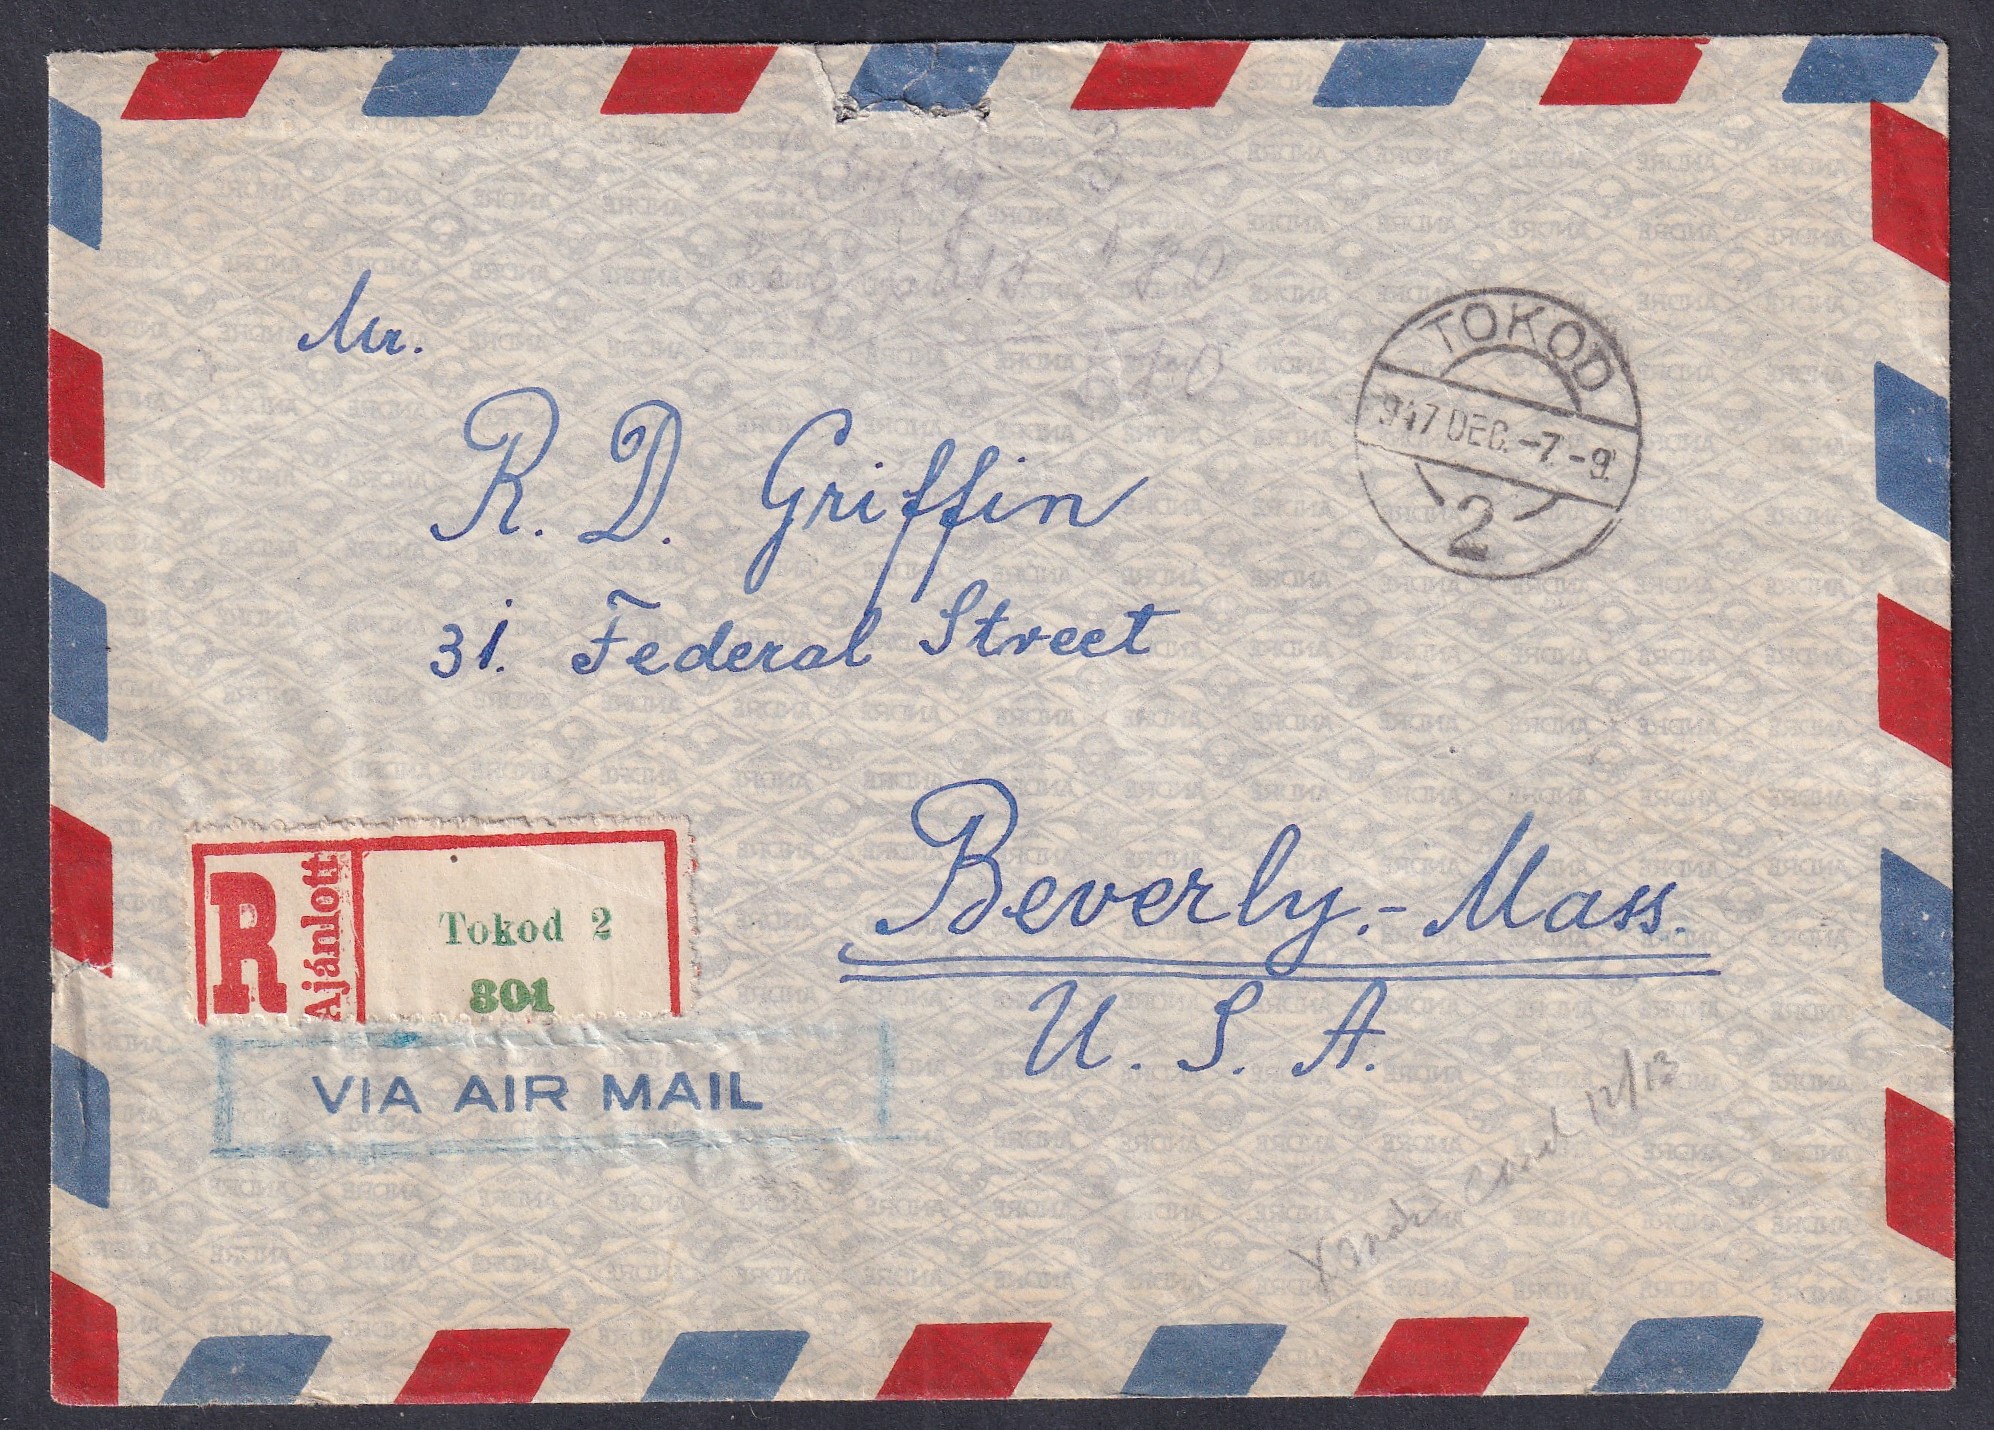 Mr.
R. D. Griffin
31. Federal Street
Beverly.- Mass.
U. S. A.
TOKOD
947 DEC. -7. -9.
2
R
Ajánlott
Tokod 2
301
VIA AIR MAIL
Xmas Card 12/13
180
ANDRE